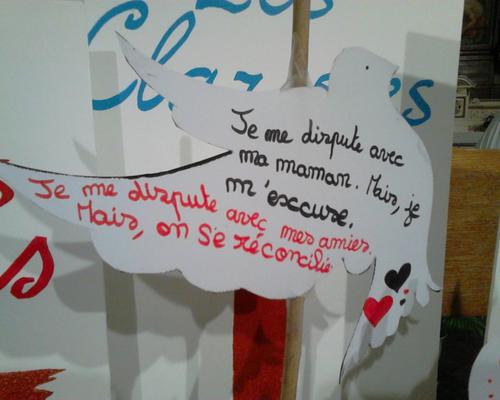 Les
Je me dispute avec
ma maman. Mais, je
m'excuse.
Je me dispute avec mes amies.
Mais, on se réconcilie